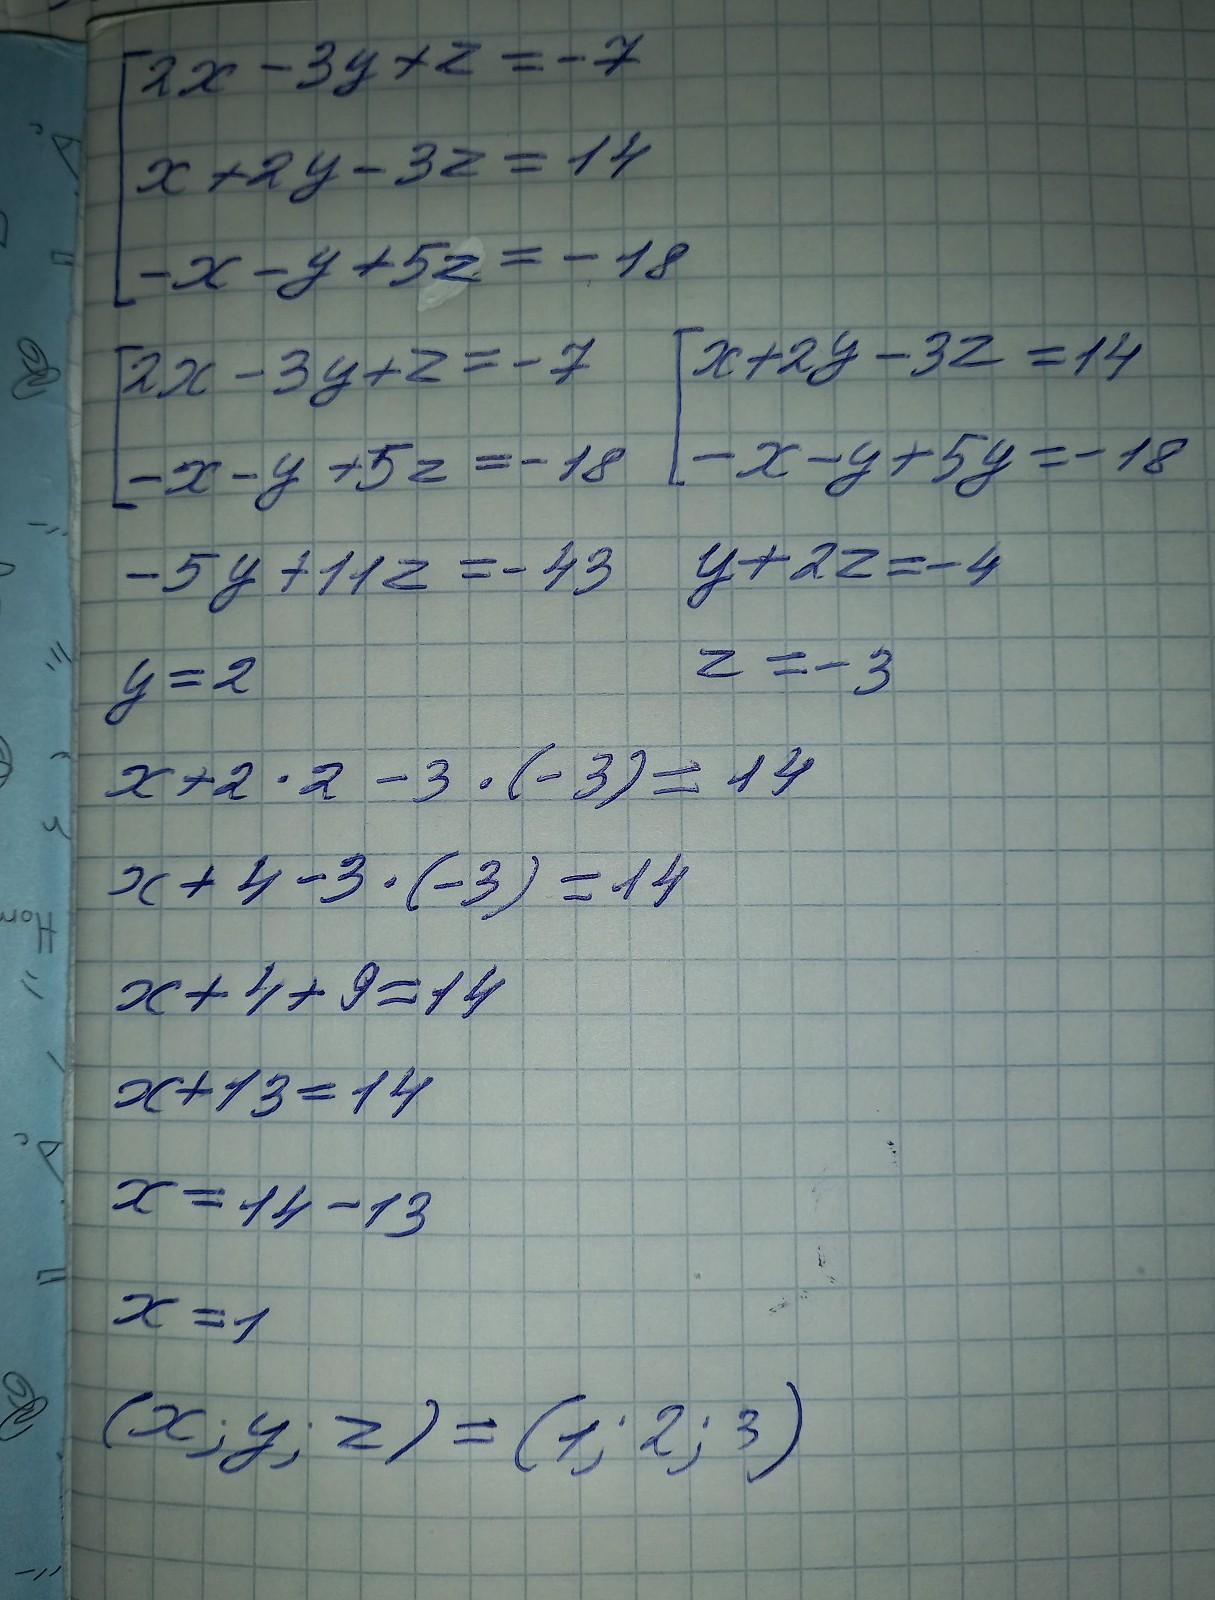 2x - 3y + z = -7
x + 2y - 3z = 14
-x - y + 5z = -18
2x - 3y + z = -7
-x - y + 5z = -18
x + 2y - 3z = 14
-x - y + 5y = -18
-5y + 11z = -43
y + 2z = -4
y = 2
z = -3
x + 2 · 2 - 3 · (-3) = 14
x + 4 - 3 · (-3) = 14
x + 4 + 9 = 14
x + 13 = 14
x = 14 - 13
x = 1
(x; y; z) = (1; 2; 3)